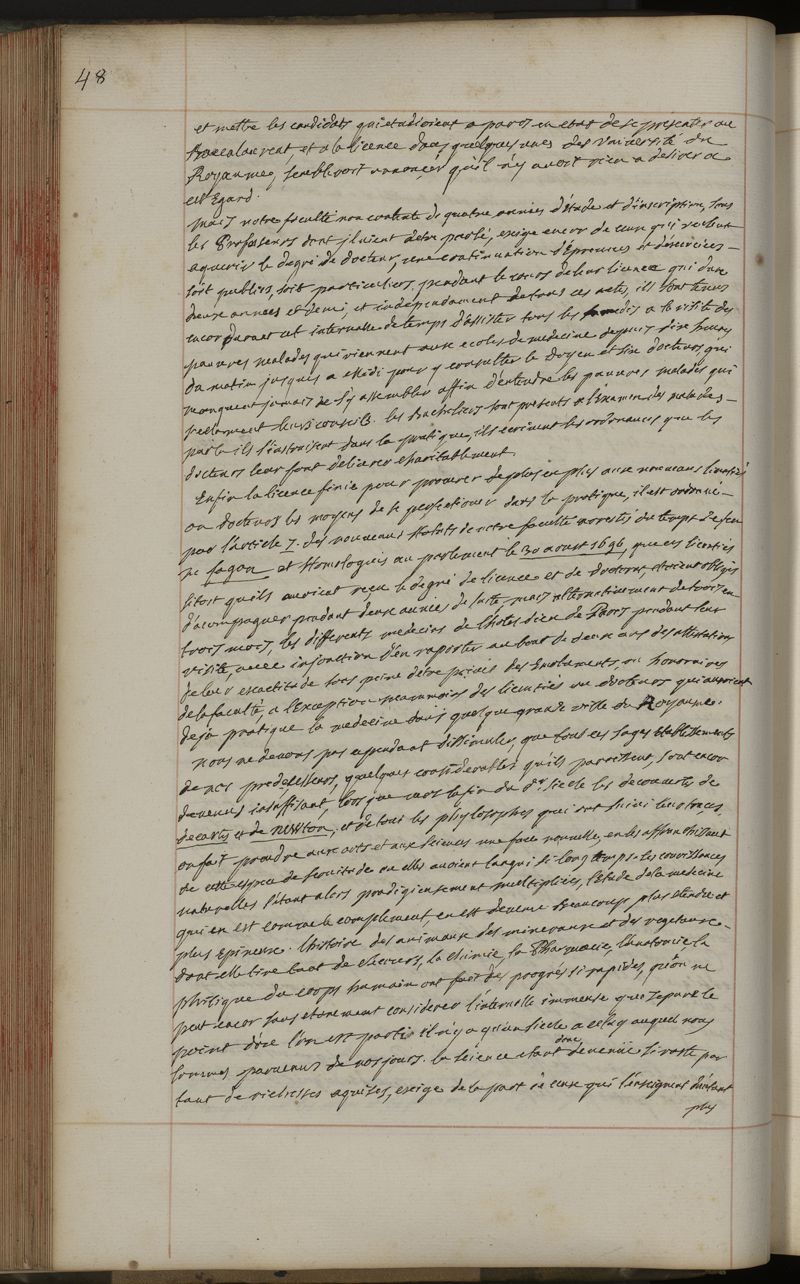 48
et mettre les candidats qui etudioient a paris en etat de se presenter au
Baccalaureat, et a la licence dans quelques unes des Université du
Royaume, sembleroit annoncer qu'il n'y avoit rien a desirer a
cet Egard.
mais notre faculté non contente de quatre années d'étude et d'inscription, sous
les Professeurs dont il vient d'etre parlé, exige encor de ceux qui veulent
aquerir le degré de docteur, une continuation d'Epreuves et d'exercices
soit publics, soit particuliers, pendant le cours de leur licence qui dure
deux années et demi, et independament de tous ces actes, ils sont tenus
encor durant cet intervalle de temps d'assister tous les samedis a la visite des
pauvres malades qui viennent aux ecoles de medecine depuis dix heures
du matin jusques a Midi pour y consulter le Doyen et six docteurs qui
manquent jamais de s'y assembler affin d'entendre les pauvres malades qui
reclament leurs conseils. les Bacheliers sont presents a l'Examen des malades
par la ils s'instruisent dans la pratique, ils ecrivent les ordonances que les
docteurs leur font delivrer charitablement.
Enfin la licence finie pour procurer de plus en plus aux nouveaux licentiés
ou docteurs les moyens de se perfectioner dans la pratique, il est ordonné
par l'article 7. des nouveaux statuts de notre faculté du temps de feu
Mr fagon et Homologués au parlement le 30 aoust 1696, que ces licentiés
sitost qu'ils auroient reçu le degré de licence et de doctorat, etoient obligés
d'acompagner pendant deux années de suite, mais alternativement de trois en
trois mois, les differents medecins de l'hotel dieu de Paris pendant leur
visite, avec injonction d'en raporter au bout de deux ans des attestations
de leur exactitude sous peine d'etre privés des Emoluments, ou honoraires
de la faculté, a l'Exception neanmoins des licentiés ou docteurs qui auroient
deja pratiqué la medecine dans quelque grande ville du Royaume.
Nous ne devons pas cependant dissimuler, que tous ces sages etablissements
de nos predecesseurs, quelques considerables qu'ils parroissent, sont encor
devenus insuffisant, lors que vers la fin du dr. siecle les decouvertes de
decartes et de newton, et de tous les phylosophes qui ont suivi leurs traces,
ont fait prendre aux arts et aux sciences une face nouvelle, en les affranchissant
de cette espece de servitude ou elles avoient langui si long temps. les connoissances
naturelles s'etant alors prodigieusement multipliées, l'Etude de la medecine
qui en est comme le complement, en est devenue Beaucoup plus etendue et
plus epineuse. l'histoire des animaux des mineraux et des vegetaux
dont elle tire tant de secours, la chimie, la Pharmacie, l'anatomie, la
phisique du corps humain ont fait des progrès si rapides, qu'on ne
peut encor sans etonement considerer l'intervalle immense qui separe le
point d'ou l'on est parti il n'y a qu'un siecle a celuy auquel nous
sommes parvenus de nos jours. la science etant donc devenüe si vaste par
tant de richesses aquises, exige de la part de ceux qui l'enseignent d'autant
plus